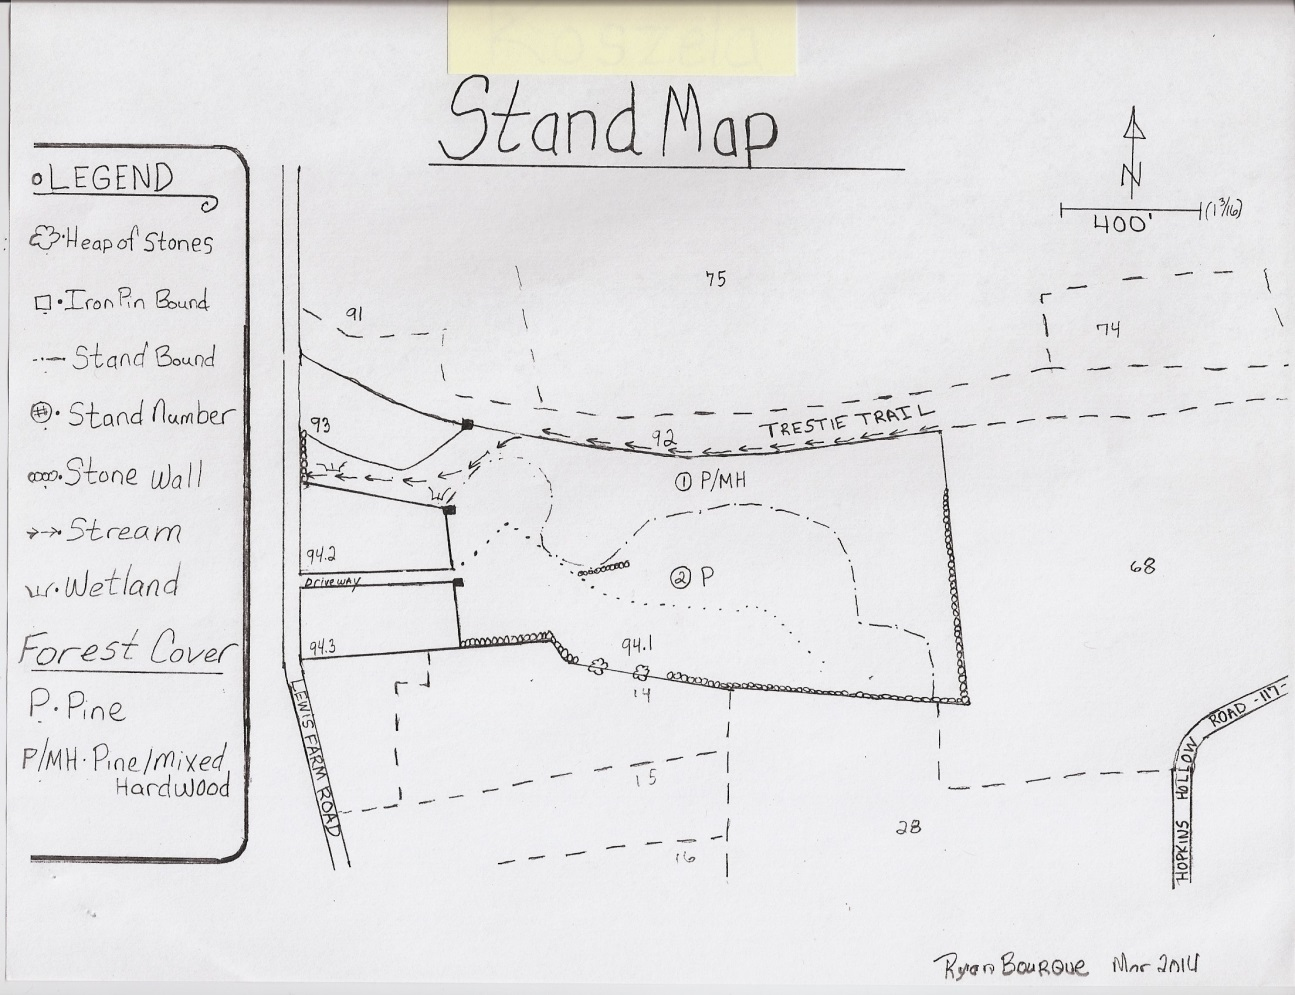 Stand Map
N
400' (1 3/16)
LEGEND
Heap of Stones
Iron Pin Bound
Stand Bound
# Stand Number
Stone Wall
Stream
Wetland
Forest Cover
P. Pine
P/MH. Pine/mixed
Hardwood
75
91
74
93
92
TRESTIE TRAIL
1 P/MH
94.2
Driveway
2 P
68
94.3
94.1
14
15
16
28
LEWIS FARM ROAD
HOPKINS HOLLOW ROAD -117-
Ryan BOURQUE Mar 2014